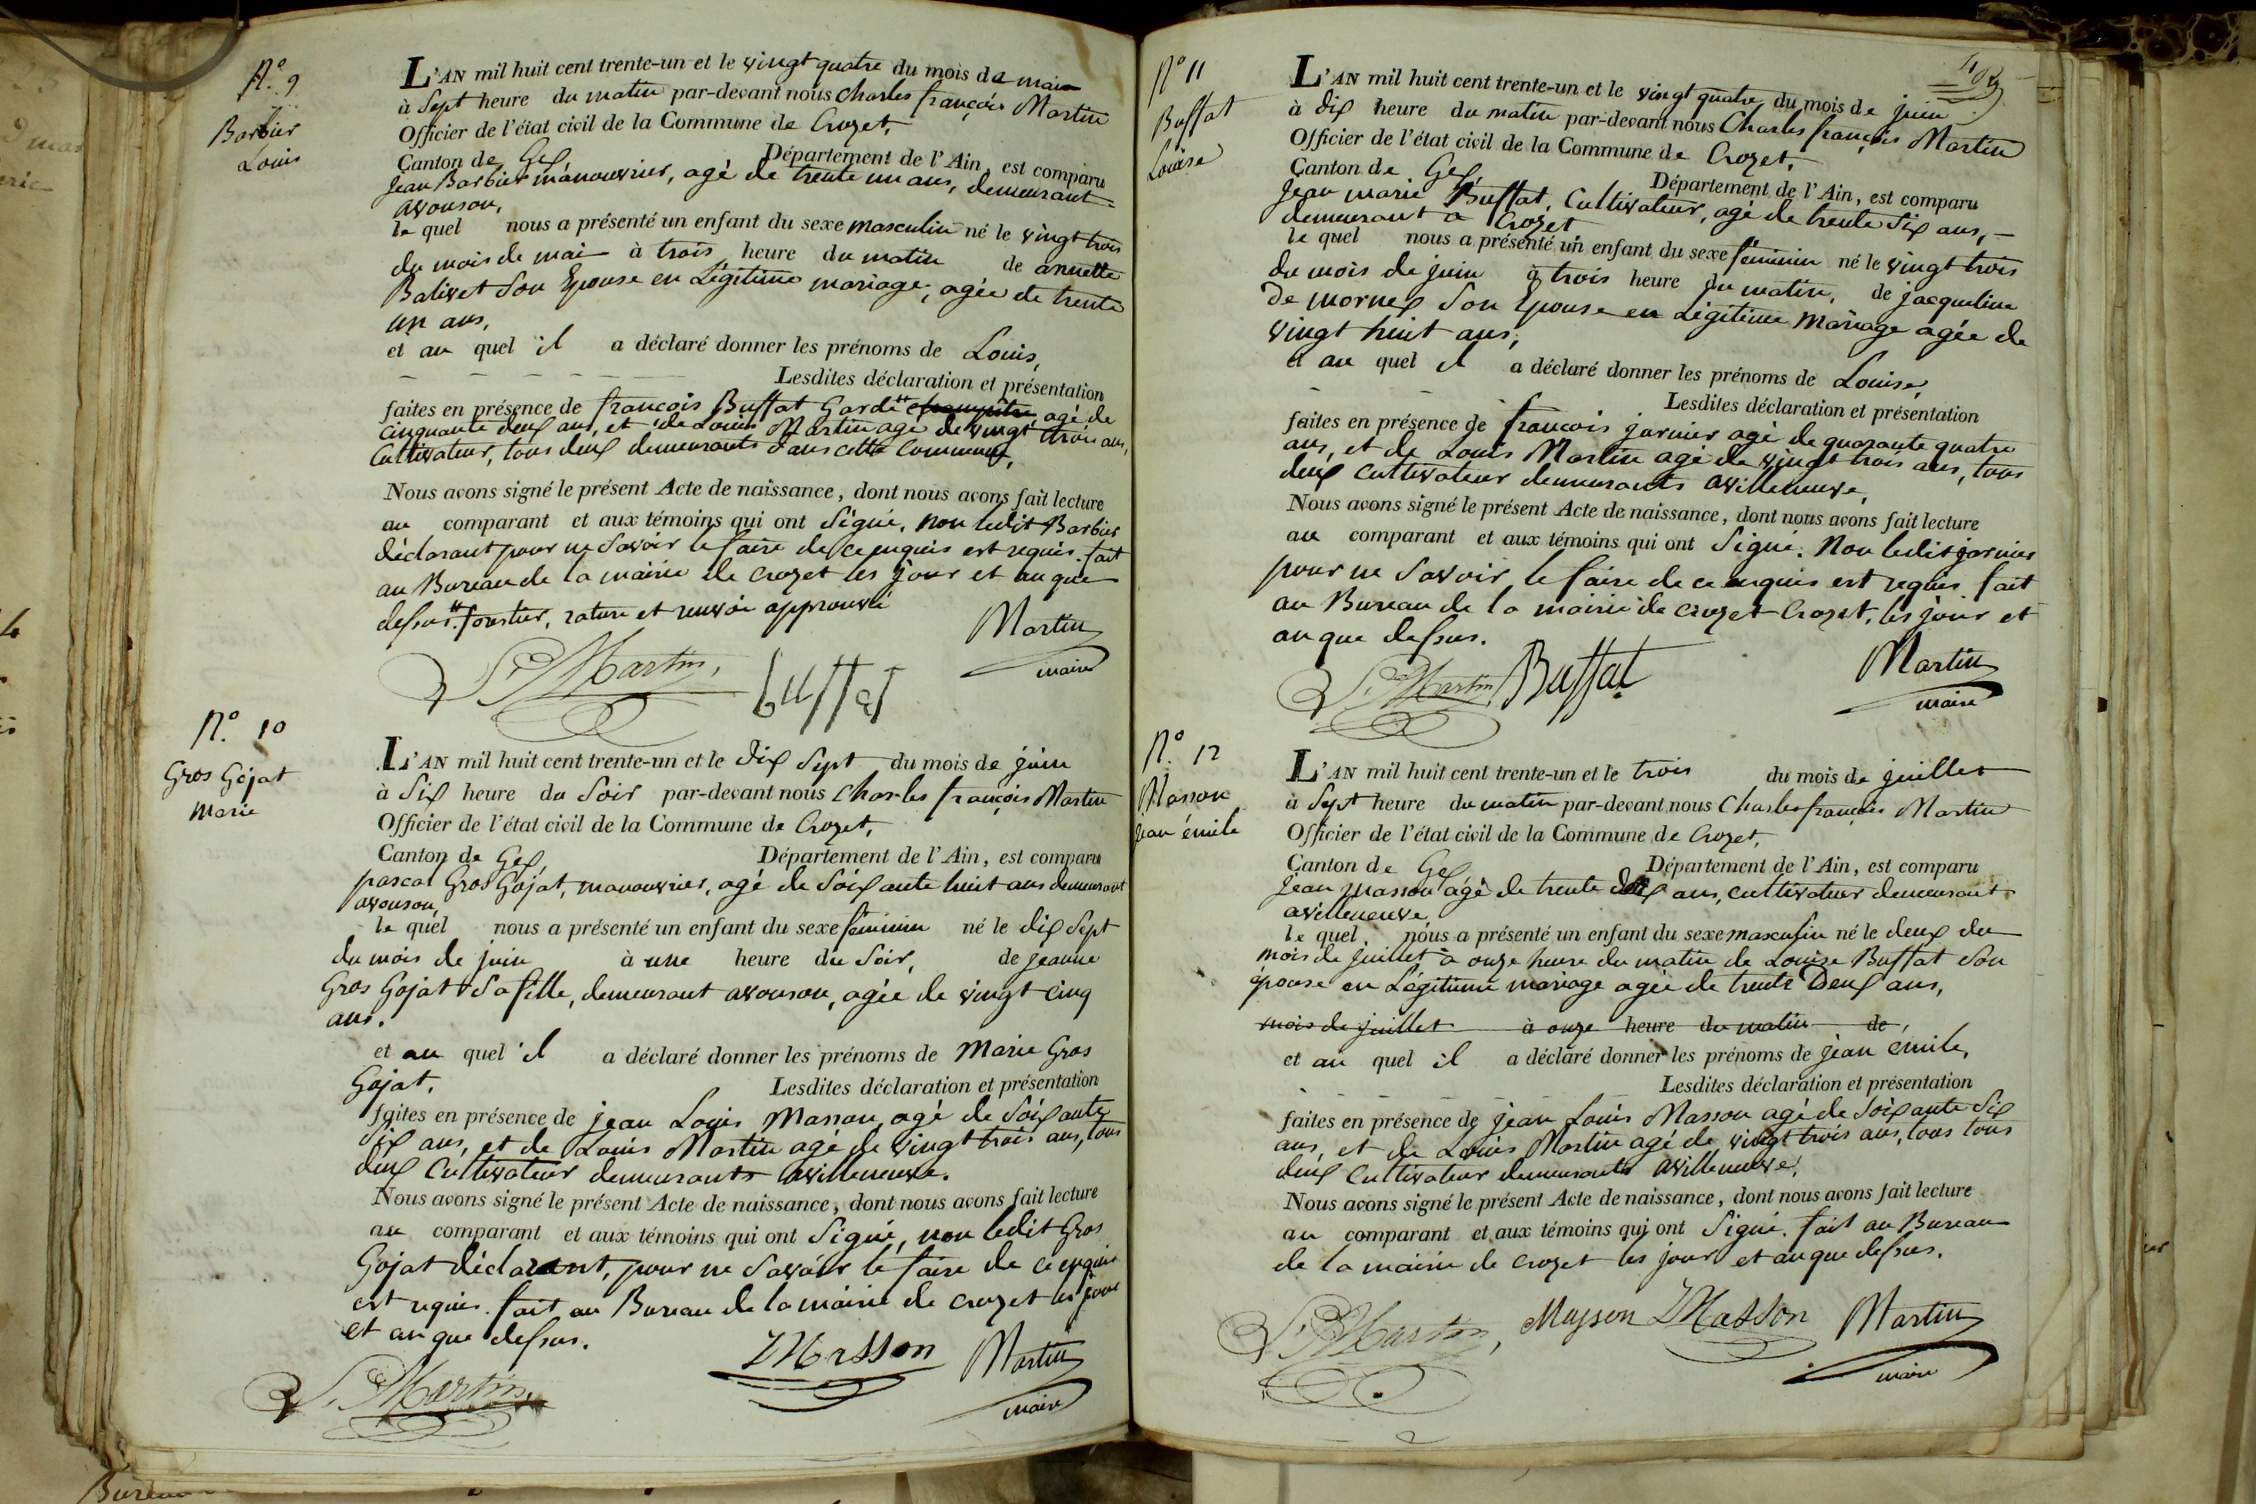 N.° 9
Barbier
Louis
L'AN mil huit cent trente-un et le vingt quatre du mois de mai
à Sept heure du matin par-devant nous Charles françois Martin
Officier de l'état civil de la Commune de Crozet,
Canton de Gex, Département de l'Ain, est comparu
Jean Barbier manouvrier, agé de trente un ans, demeurant
avouson,
le quel nous a présenté un enfant du sexe masculin né le vingt trois
du mois de mai à trois heure du matin de annette
Balivet Son Epouse en Légitime mariage, agée de trente
un ans,
et au quel il a déclaré donner les prénoms de Louis,
Lesdites déclaration et présentation
faites en présence de francois Buffat Garde champêtre, agé de
cinquante deux ans, et de Louis Martin agé de vingt trois ans,
Cultivateur, tous deux demeurants dans cette commune,
Nous avons signé le présent Acte de naissance, dont nous avons fait lecture
au comparant et aux témoins qui ont Signé, non ledit Barbier
déclarant pour ne Savoir le faire de ce enquis est requis. fait
au Bureau de la mairie de Crozet les jour et an que
dessus. forstier, rature et renvoi approuvé
Martin
maire
L. Martin,
buffat
N.° 10
Gros Gojat
Marie
L'AN mil huit cent trente-un et le dix Sept du mois de juin
à Six heure du Soir par-devant nous Charles françois Martin
Officier de l'état civil de la Commune de Crozet,
Canton de Gex, Département de l'Ain, est comparu
pascal Gros Gojat, manouvrier, agé de Soixante huit ans demeurant
avouson,
le quel nous a présenté un enfant du sexe féminin né le dix Sept
du mois de juin à une heure du Soir, de jeanne
Gros Gojat Sa fille, demeurant avouson, agée de vingt cinq
ans.
et au quel il a déclaré donner les prénoms de Marie Gros
Gojat, Lesdites déclaration et présentation
faites en présence de jean Louis Masson, agé de Soixante
Six ans, et de Louis Martin agé de vingt trois ans, tous
deux Cultivateur demeurants avilleneuve.
Nous avons signé le présent Acte de naissance, dont nous avons fait lecture
au comparant et aux témoins qui ont Signé, non ledit Gros
Gojat déclarant, pour ne Savoir le faire de ce enquis
est requis. fait au Bureau de la mairie de Crozet les jour
et an que dessus.
Masson
Martin
maire
L. Martin,
N° 11
Buffat
Louise
L'AN mil huit cent trente-un et le vingt quatre du mois de juin
à dix heure du matin par-devant nous Charles françois Martin
Officier de l'état civil de la Commune de Crozet,
Canton de Gex, Département de l'Ain, est comparu
Jean marie Buffat, Cultivateur, agé de trente Six ans,
demeurant a Crozet,
le quel nous a présenté un enfant du sexe féminin né le vingt trois
du mois de juin à trois heure du matin, de jacqueline
De mornex Son Epouse en Légitime Mariage agée de
vingt huit ans,
et au quel il a déclaré donner les prénoms de Louise,
Lesdites déclaration et présentation
faites en présence de francois jarnier agé de quarante quatre
ans, et de Louis Martin agé de vingt trois ans, tous
deux Cultivateur demeurants avilleneuve,
Nous avons signé le présent Acte de naissance, dont nous avons fait lecture
au comparant et aux témoins qui ont Signé. Non ledit jarnier
pour ne Savoir le faire de ce enquis est requis. fait
au Bureau de la mairie de Crozet Crozet, les jour et
an que dessus.
L. Martin
Buffat
Martin
maire
N.° 12
Masson
Jean émile
L'AN mil huit cent trente-un et le trois du mois de juillet
à Sept heure du matin par-devant nous Charles françois Martin
Officier de l'état civil de la Commune de Crozet,
Canton de Gex, Département de l'Ain, est comparu
Jean Masson agé de trente ans, cultivateur demeurant
avilleneuve
le quel nous a présenté un enfant du sexe masculin né le deux du
mois de juillet à onze heure du matin de Louise Buffat Son
épouse en Légitime mariage agée de trente Deux ans,
mois de juillet à onze heure du matin de
et au quel il a déclaré donner les prénoms de jean émile,
Lesdites déclaration et présentation
faites en présence de jean Louis Masson agé de Soixante Six
ans, et de Louis Martin agé de vingt trois ans, tous tous
deux Cultivateur demeurants avilleneuve,
Nous avons signé le présent Acte de naissance, dont nous avons fait lecture
au comparant et aux témoins qui ont Signé. fait au Bureau
de la mairie de Crozet les jour et an que dessus.
L. Martin,
Masson
Masson
Martin
maire